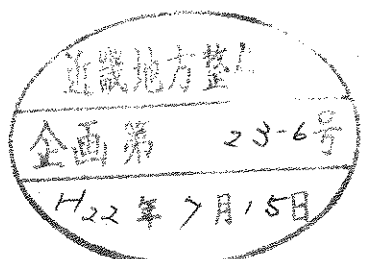 近畿地方整
企画第 23-6号
H22年7月15日